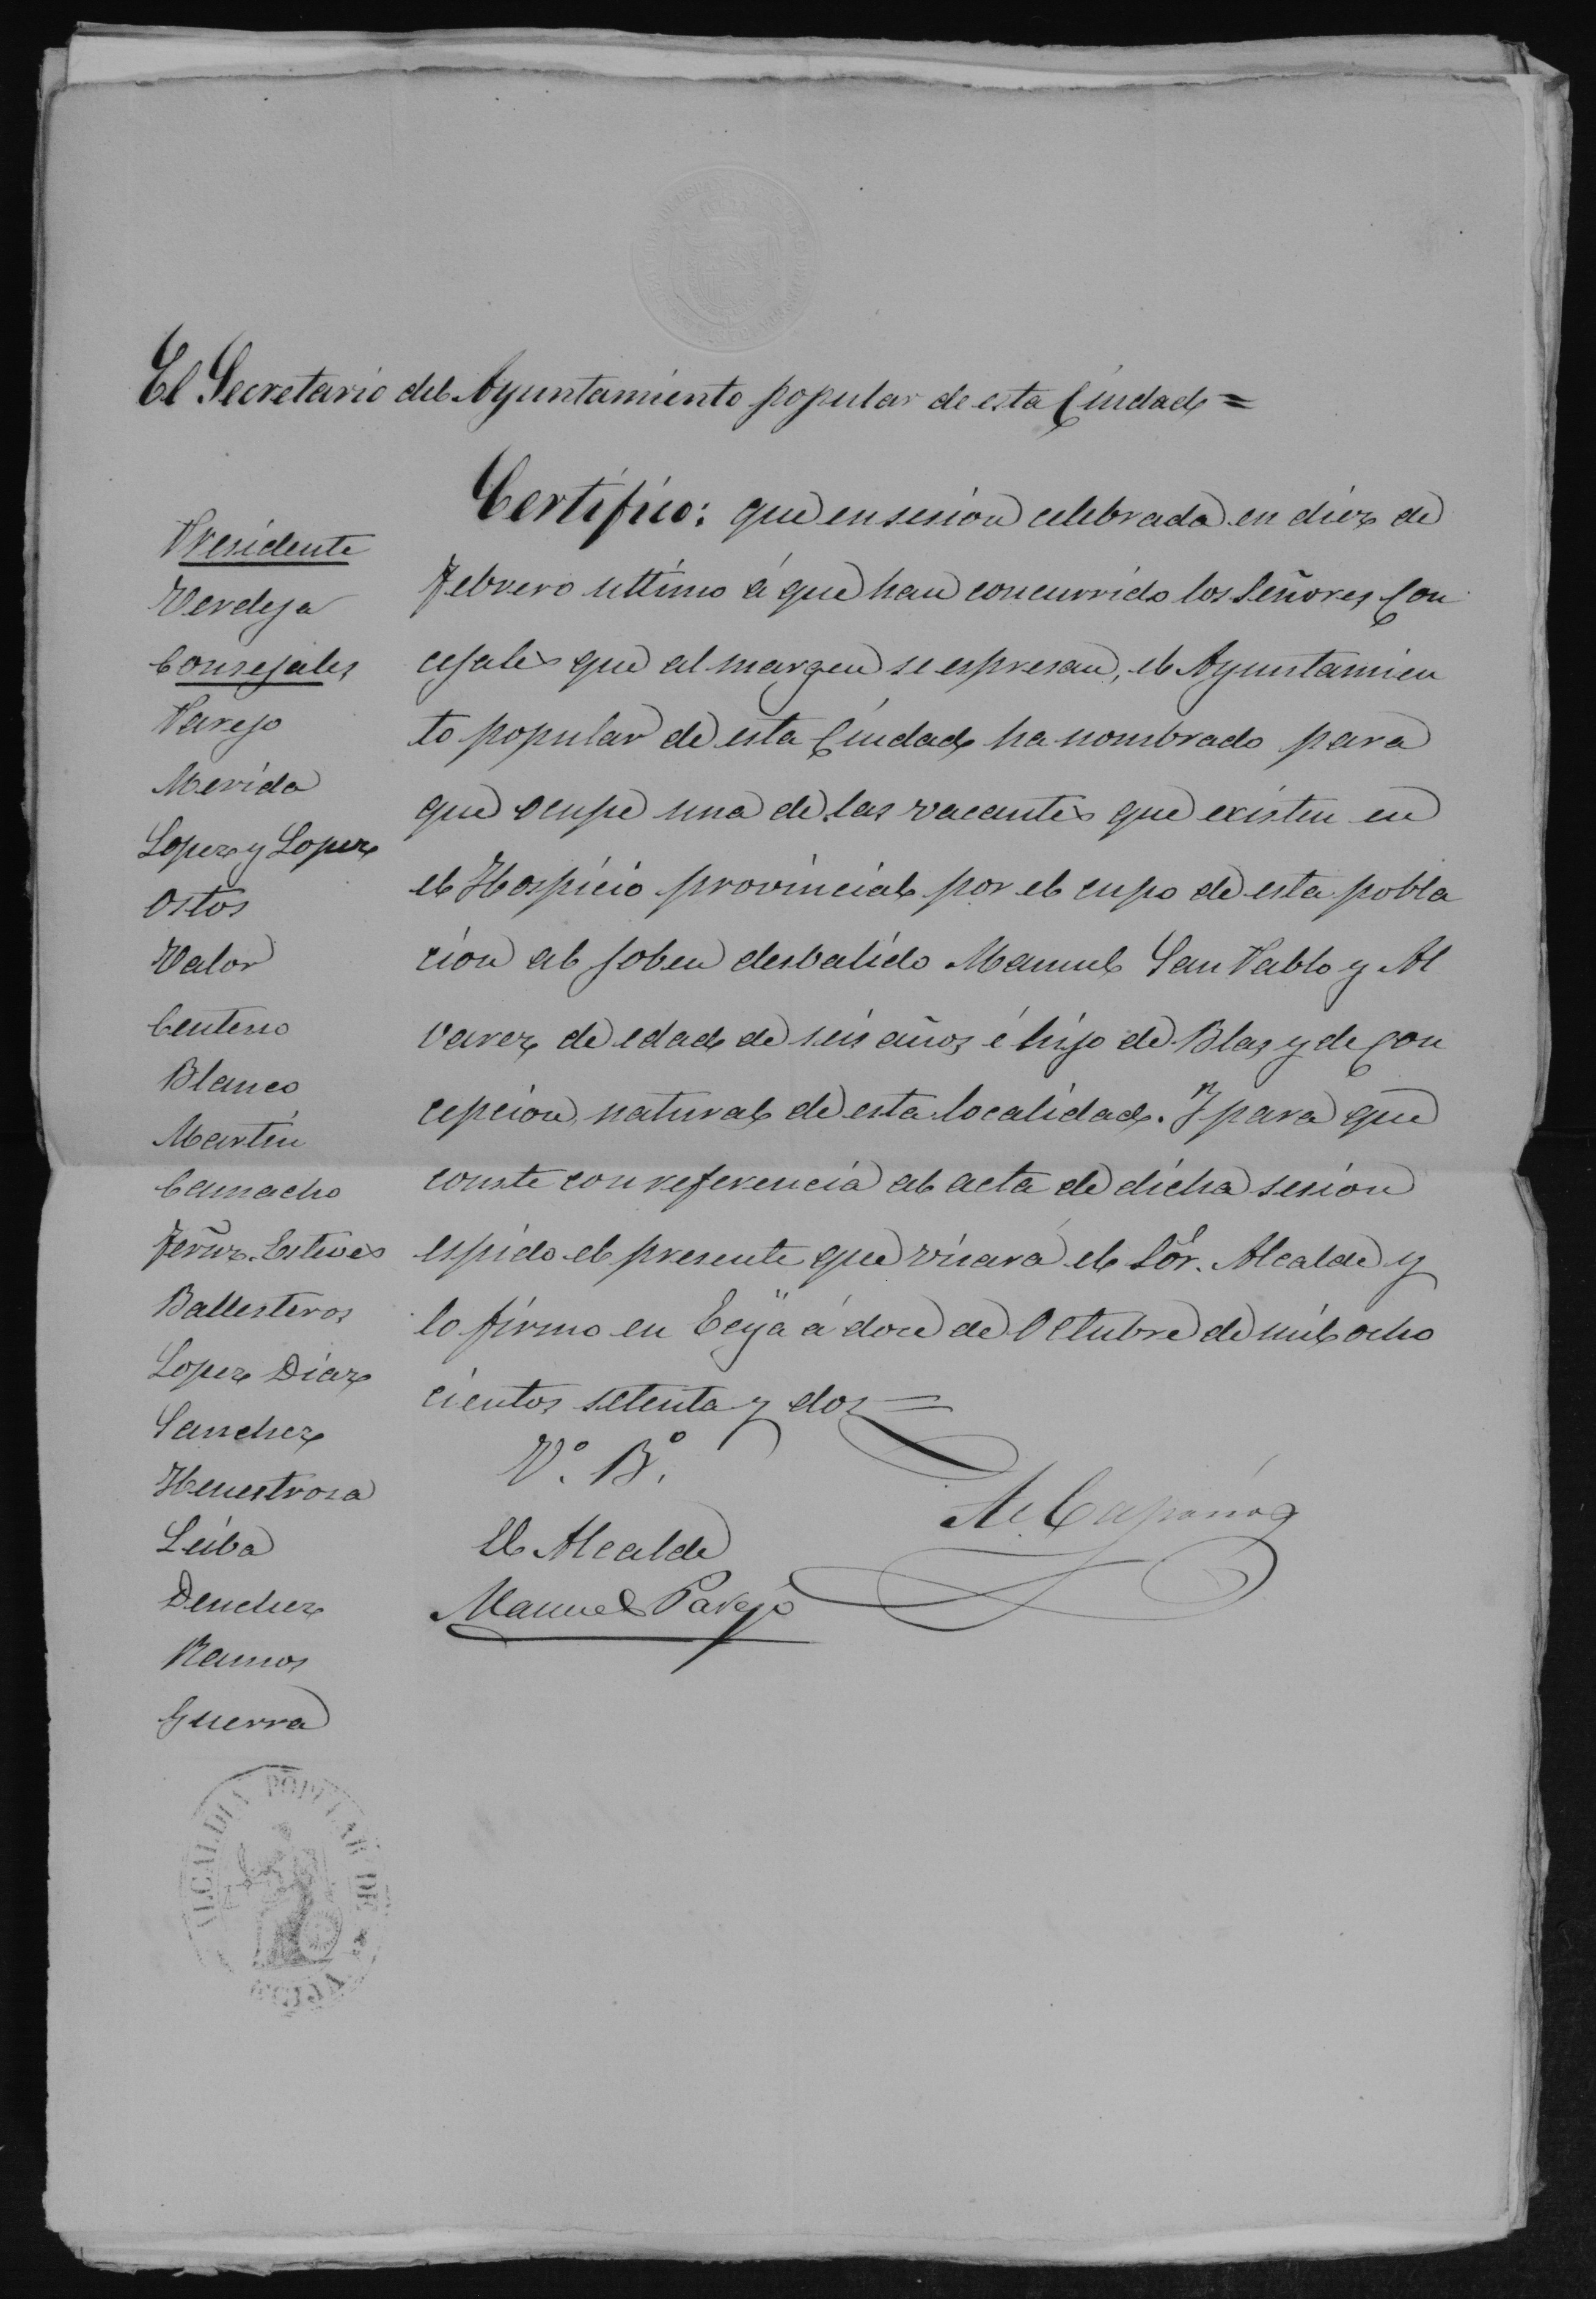 El Secretario del Ayuntamiento popular de esta Ciudad =
Certifico: que en sesion celebrada en diez de
Febrero ultimo á que han concurrido los Señores Con
cejales que al margen se espresan, el Ayuntamien
to popular de esta Ciudad ha nombrado para
que ocupe una de las vacantes que existen en
el Hospicio provincial por el cupo de esta pobla
cion al joben desvalido Manuel San Pablo y Al
varez de edad de seis años é hijo de Blas y de Con
cepcion, natural de esta localidad. Y para que
conste con referencia al acta de dicha sesion
espido el presente que visará el Sór. Alcalde y
lo firmo en Ecija á doce de Octubre de mil ocho
cientos setenta y dos =
Presidente
Verdeja
Consejales
Parejo
Merida
Lopez y Lopez
Ostos
Valor
Centeno
Blanco
Martin
Camacho
Fernz. Esteves
Ballesteros
Lopez Diaz
Sanchez
Henestrosa
Leiba
Denchez
Ramos
Guerra
V.º B.º
El Alcalde
Manuel Parejo
ALCALDIA POPULAR DE
ECIJA